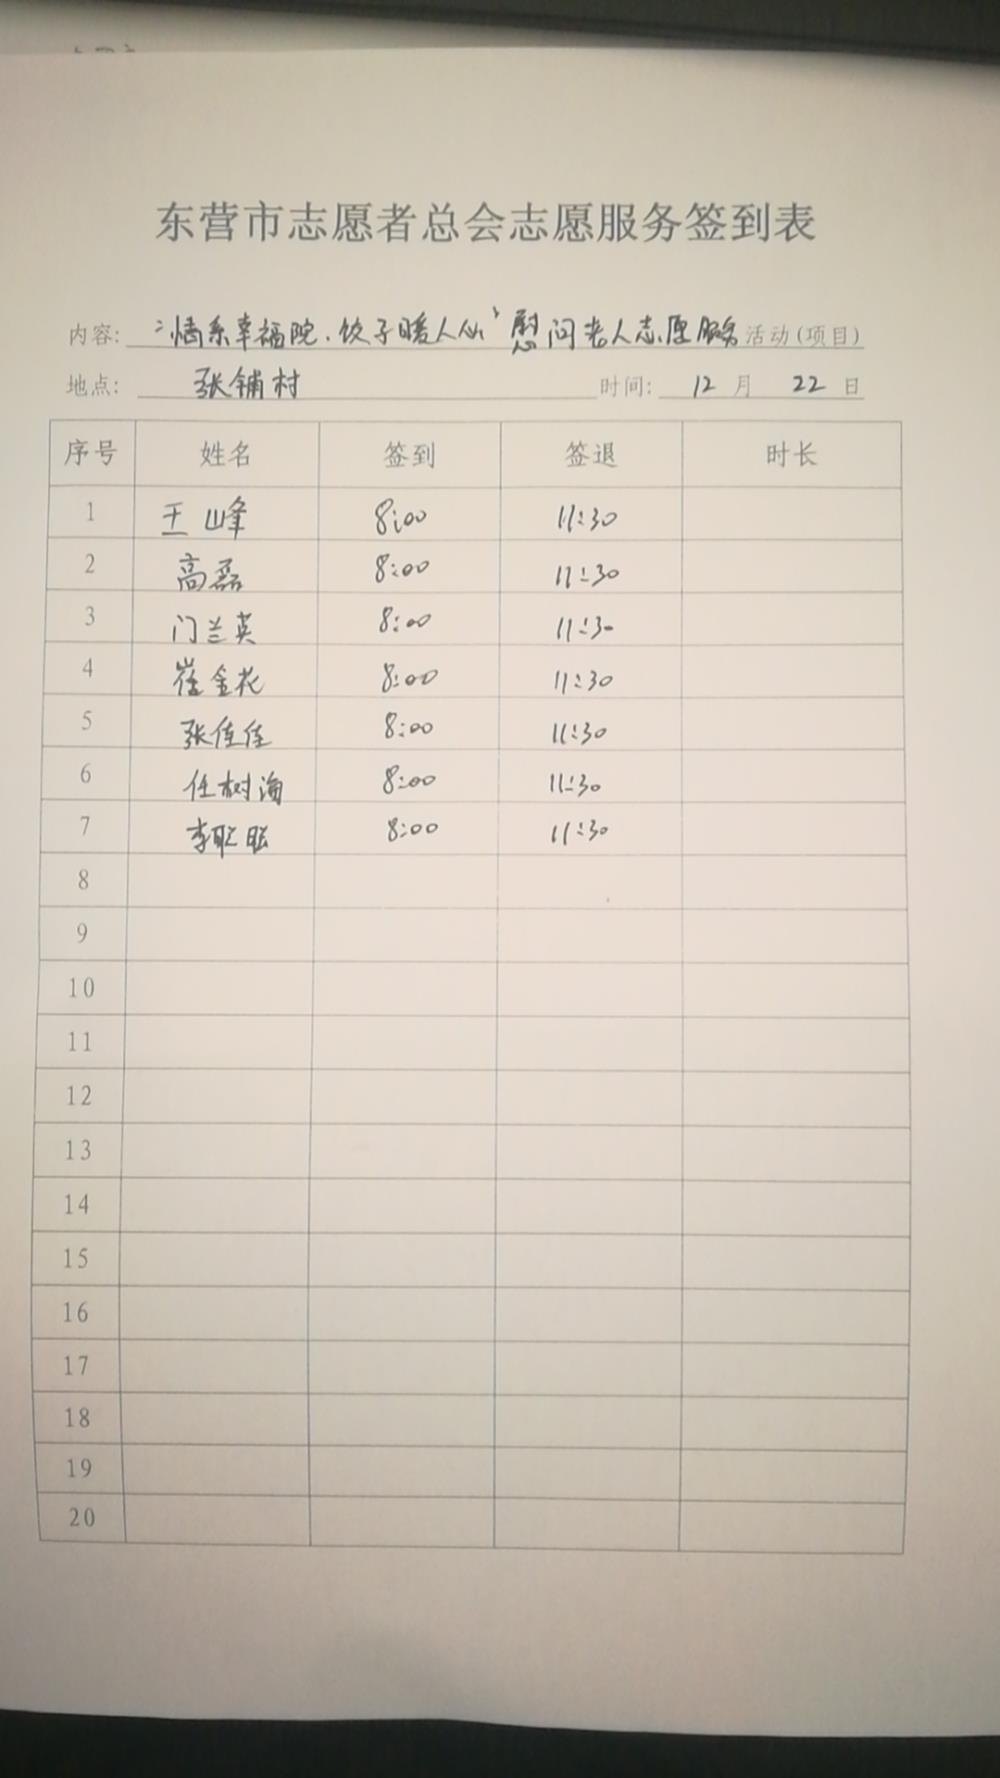 东营市志愿者总会志愿服务签到表
内容: “情系幸福院.饺子暖人心”慰问老人志愿服务 活动(项目)
地点: 张铺村 时间: 12 月 22 日
序号 姓名 签到 签退 时长
1 王峰 8:00 11:30
2 高磊 8:00 11:30
3 门兰英 8:00 11:30
4 崔金花 8:00 11:30
5 张佳佳 8:00 11:30
6 任树海 8:00 11:30
7 李聪聪 8:00 11:30
8
9
10
11
12
13
14
15
16
17
18
19
20